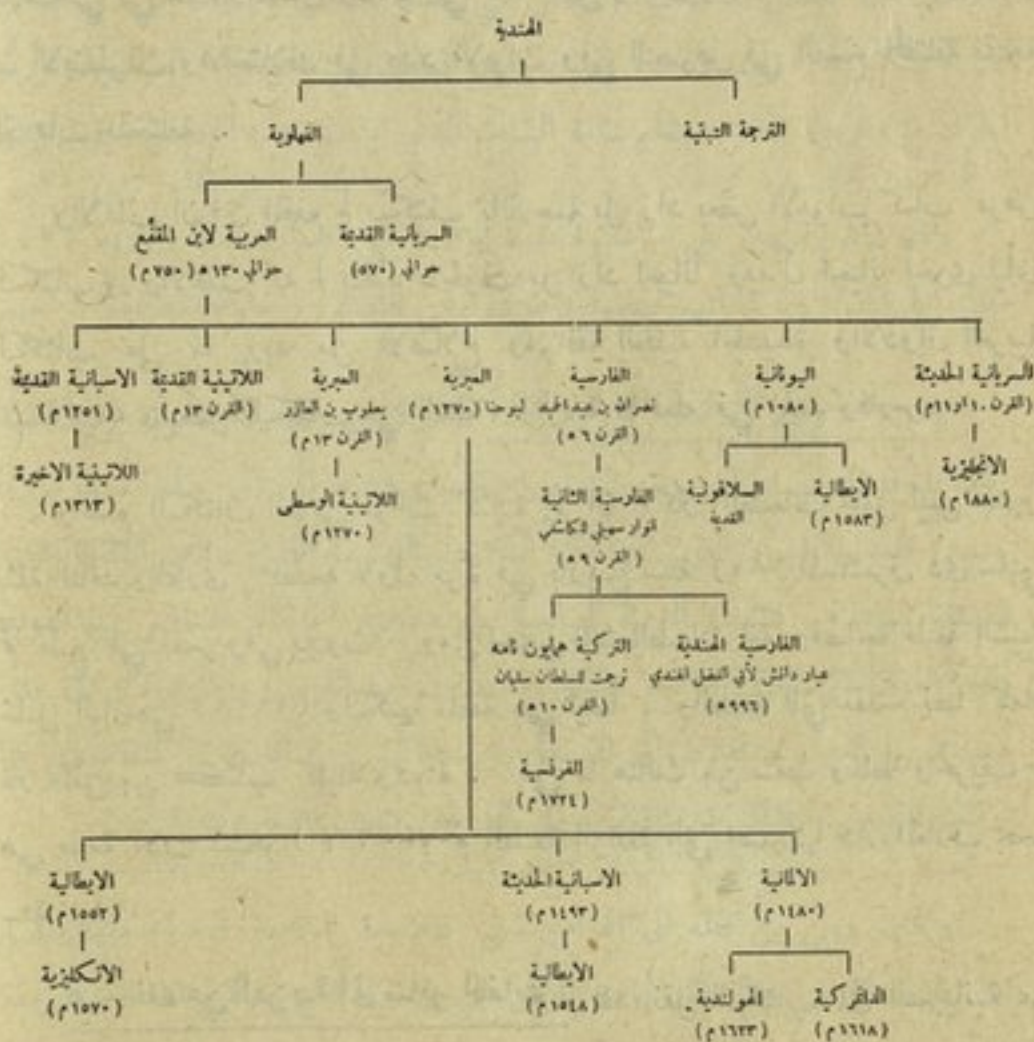 الهندية
الترجمة التبتية
الفهلوية
السريانية القديمة
حوالي (٥٧٠)
العربية لابن المقفَّع
حوالي ١٣٠ﻫ (٧٥٠م)
السريانية الحديثة
(القرن ١٠ او ١١م)
الانجليزية
(١٨٨٠م)
اليونانية
(١٠٨٠م)
الايطالية
(١٥٨٣م)
السلافونية
القديمة
الفارسية
لنصرالله بن عبد الحميد
(القرن ٦ﻫ)
الفارسية الثانية
انوار سهيلي للكاشفي
(القرن ٩ﻫ)
الفارسية الهندية
عيار دانش لأبي الفضل الهندي
(٩٩٦ﻫ)
التركية همايون نامه
ترجمت للسلطان سليمان
(القرن ١٠ﻫ)
الفرنسية
(١٧٢٤م)
العبرية
ليوحنا (١٢٧٠م)
العبرية
يعقوب بن العازر
(القرن ١٣م)
اللاتينية الوسطى
(١٢٧٠م)
اللاتينية القديمة
(القرن ١٣م)
الاسبانية القديمة
(١٢٥١م)
اللاتينية الاخيرة
(١٣١٣م)
الالمانية
(١٤٨٠م)
الدانمركية
(١٦١٨م)
الهولندية
(١٦٢٣م)
الاسبانية الحديثة
(١٤٩٣م)
الايطالية
(١٥٤٨م)
الايطالية
(١٥٥٢م)
الانكليزية
(١٥٧٠م)